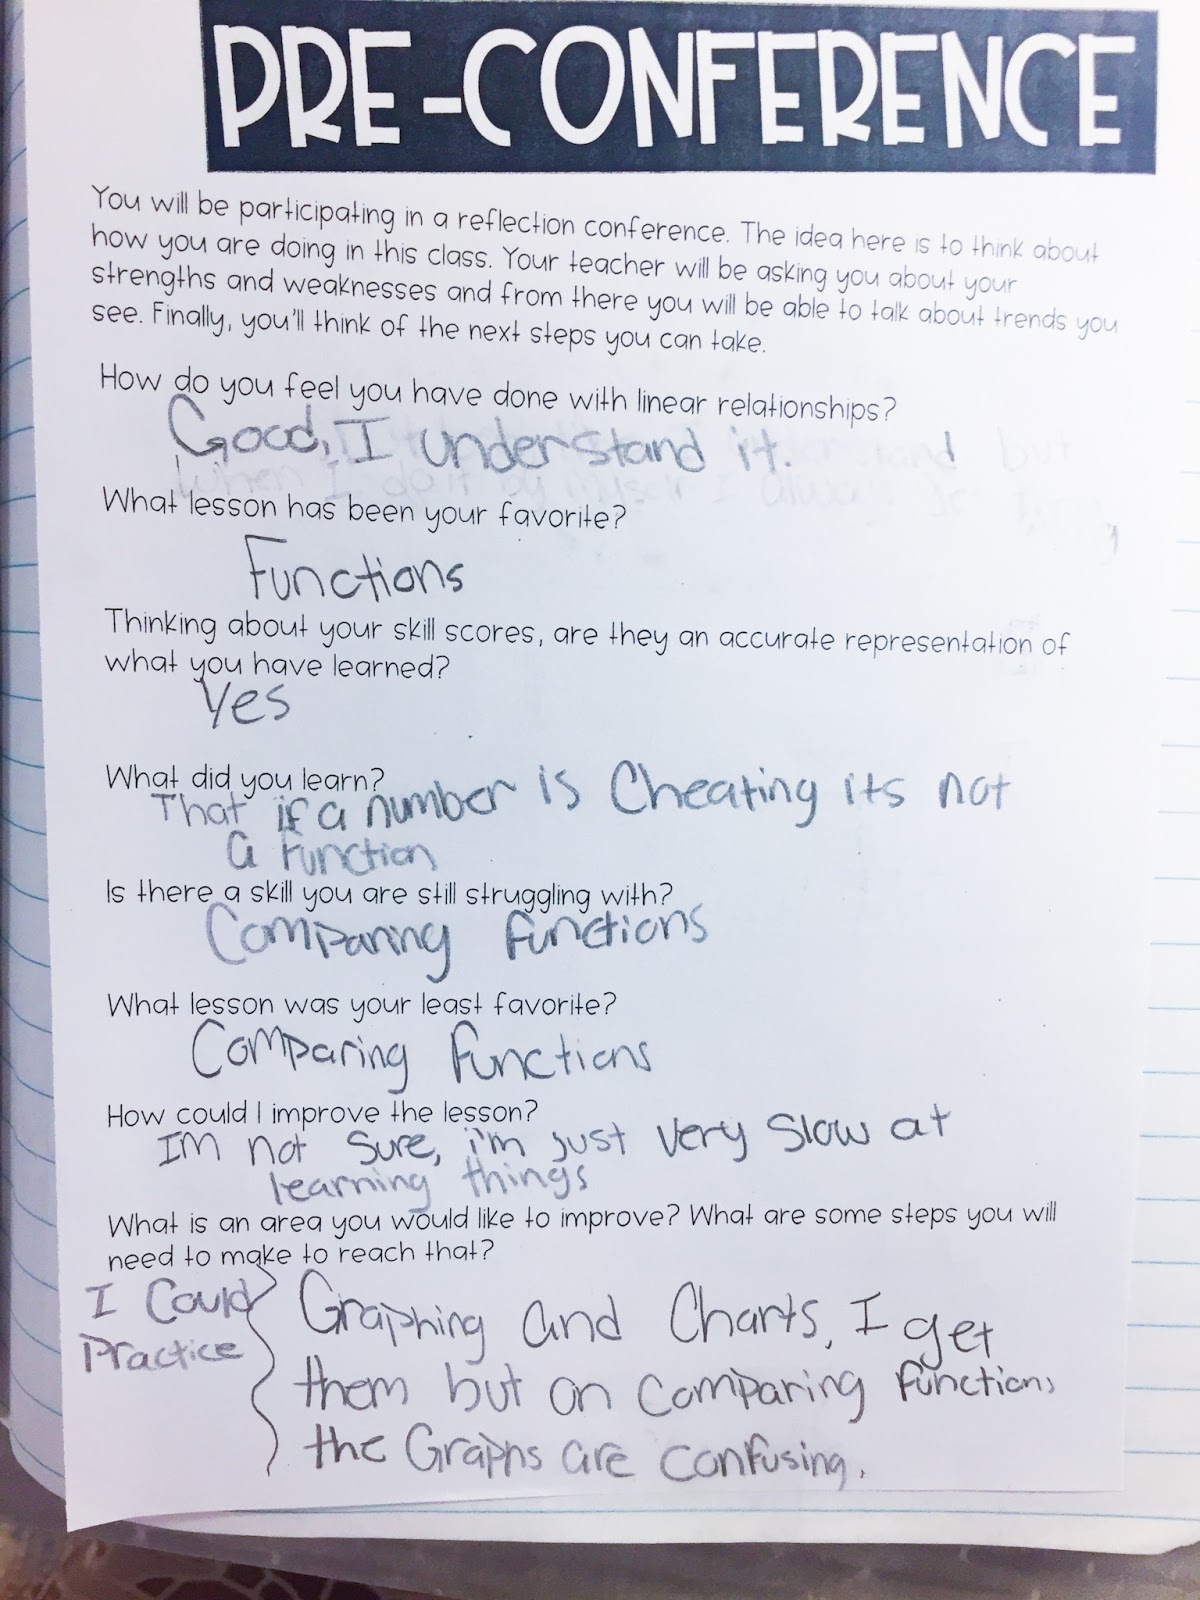 PRE-CONFERENCE
You will be participating in a reflection conference. The idea here is to think about
how you are doing in this class. Your teacher will be asking you about your
strengths and weaknesses and from there you will be able to talk about trends you
see. Finally, you'll think of the next steps you can take.
How do you feel you have done with linear relationships?
Good, I understand it.
What lesson has been your favorite?
Functions
Thinking about your skill scores, are they an accurate representation of
what you have learned?
Yes
What did you learn?
That if a number is Cheating its not
a function
Is there a skill you are still struggling with?
Comparing functions
What lesson was your least favorite?
Comparing functions
How could I improve the lesson?
IM not sure, i'm just very slow at
learning things
What is an area you would like to improve? What are some steps you will
need to make to reach that?
I Could
Practice
Graphing and Charts, I get
them but on comparing functions
the Graphs are confusing.